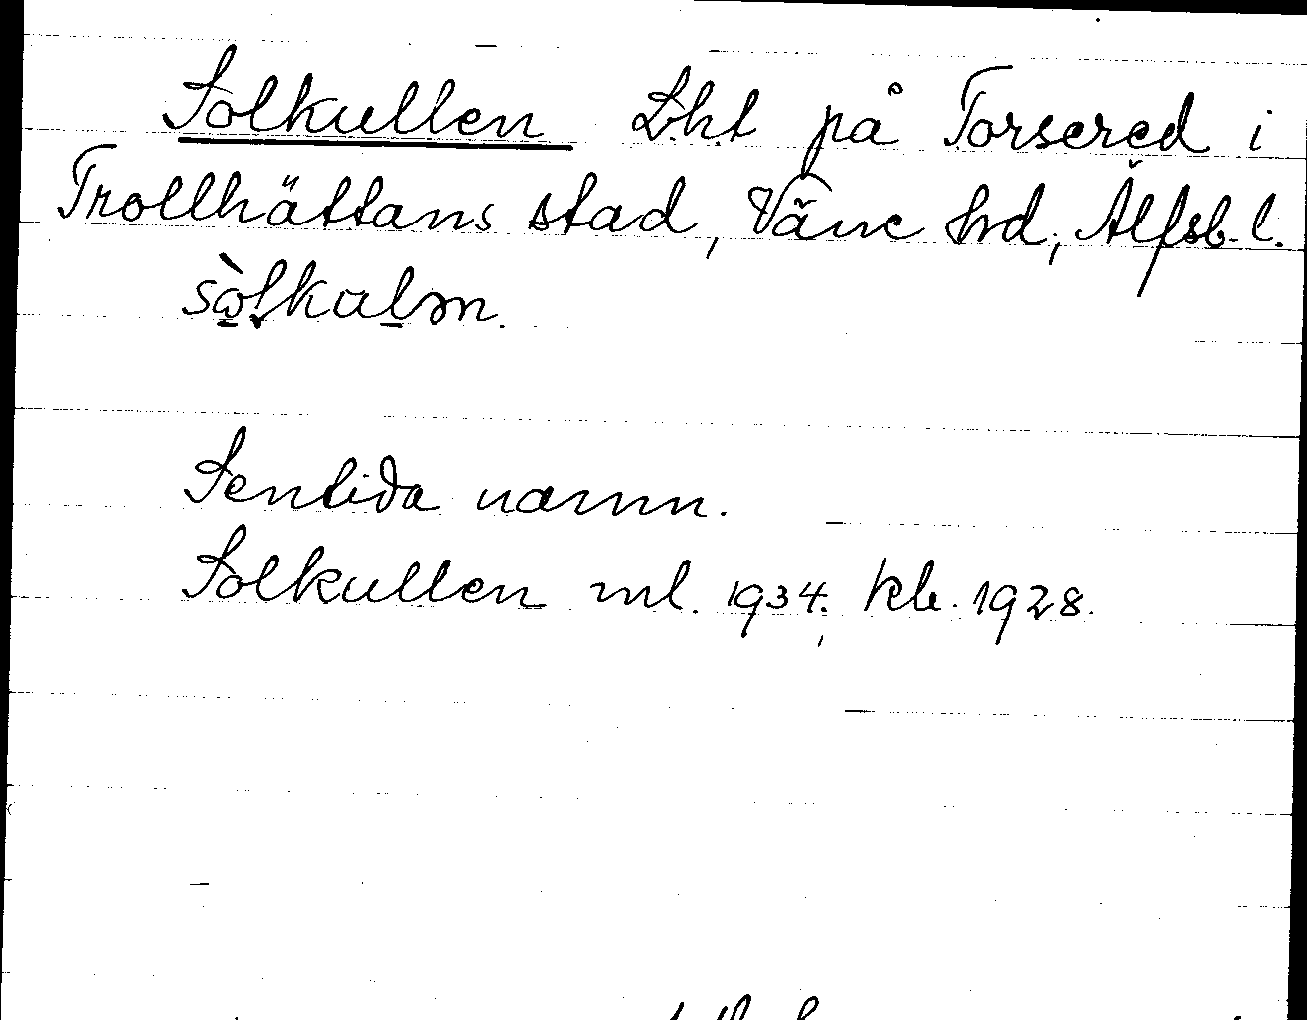 Solkullen Lht på Torsered i
Trollhättans stad, Väne hrd, Älfsb. l.
sòlkulm.
Sentida namn.
Solkullen ml. 1934, kb. 1928.